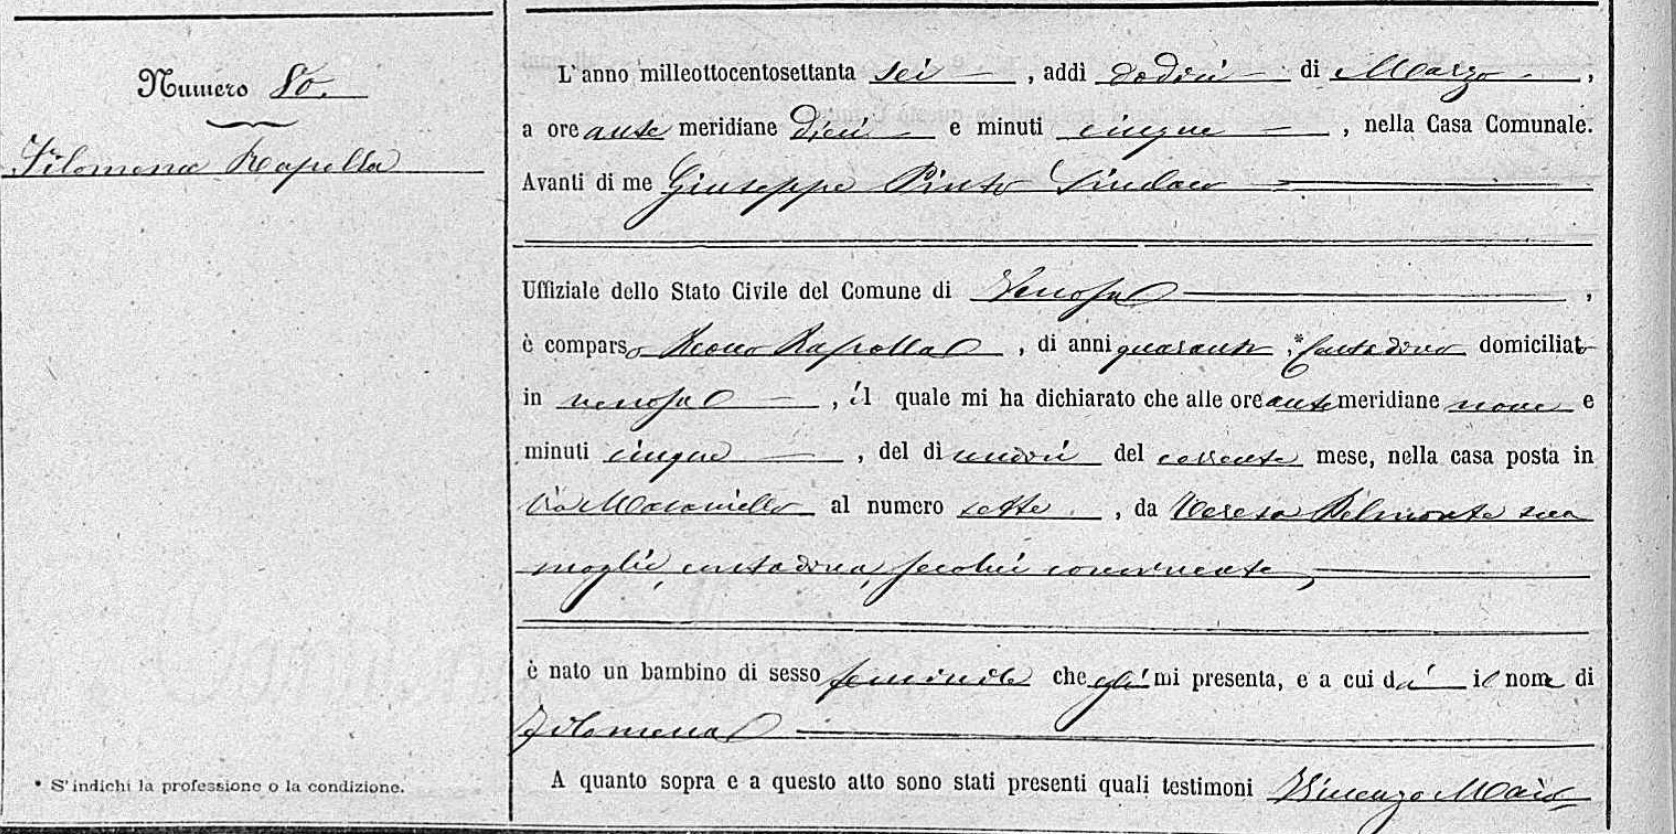 Numero 80.
Filomena Rapolla
L'anno milleottocentosettanta sei, addì dodici di Marzo,
a ore ante meridiane dieci e minuti cinque, nella Casa Comunale.
Avanti di me Giuseppe Pinto Sindaco
Uffiziale dello Stato Civile del Comune di Venosa,
è comparso Rocco Rapolla, di anni quaranta,* Contadino domiciliato
in Venosa, il quale mi ha dichiarato che alle ore ante meridiane nove e
minuti cinque, del dì undici del corrente mese, nella casa posta in
Via Masaniello al numero sette, da Teresa Belmonte sua
moglie, contadina, secolui convivente,
è nato un bambino di sesso feminile che egli mi presenta, e a cui dà il nome di
Filomena
A quanto sopra e a questo atto sono stati presenti quali testimoni Vincenzo
* S'indichi la professione o la condizione.